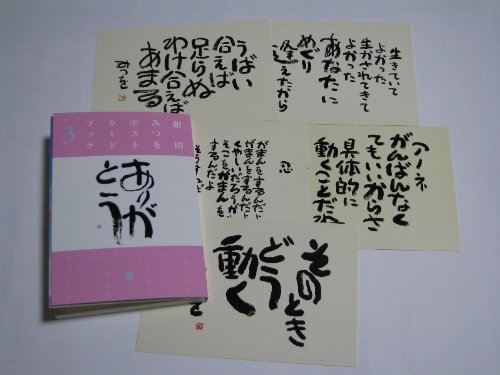 相田
みつを
ポスト
カード
ブック
3
ありが
とう
うばい
合えば
足らぬ
わけ合えば
あまる
みつを
生きていて
よかった
生かされてきて
よかった
あなたに
めぐり
逢えたから
忍
がまんをするんだ
がまんをするんだよ
くやしいだろうが
そこをがまんを
するんだよ
アノーネ
がんばんなく
てもいいからさ
具体的に
動くことだね
そのとき
どう
動く